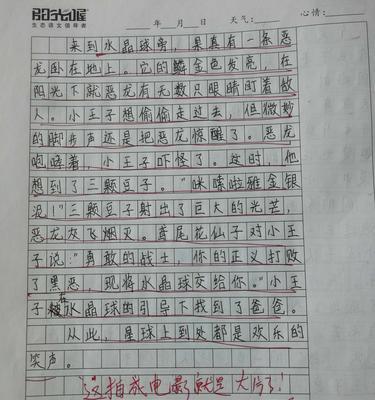 阳光喔
生态语文倡导者
年 月 日 天气： 心情：
来到水晶球旁，果真有一条恶
龙卧在地上。它的鳞金色发亮，在
阳光下就恶龙有无数只眼睛盯着敌
人。小王子想偷偷走过去，但微妙
的脚步声还是把恶龙惊醒了。恶龙
咆哮着，小王子吓怪了。这时，他
想到了三颗豆子。“咪嗦啦雅金银
泥！”三颗豆子射出了巨大的光芒，
恶龙灰飞烟灭。鸢尾花仙子对小王
子说：“勇敢的战士，你的正义打败
了黑恶，现将水晶球交给你。”小王
子在水晶球的引导下找到了爸爸。
从此，星球上到处都是欢乐的
笑声。
这拍成电影就是大片了！